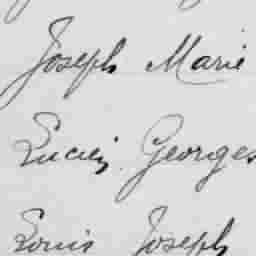 Joseph Marie
Lucien Georges
Louis Joseph